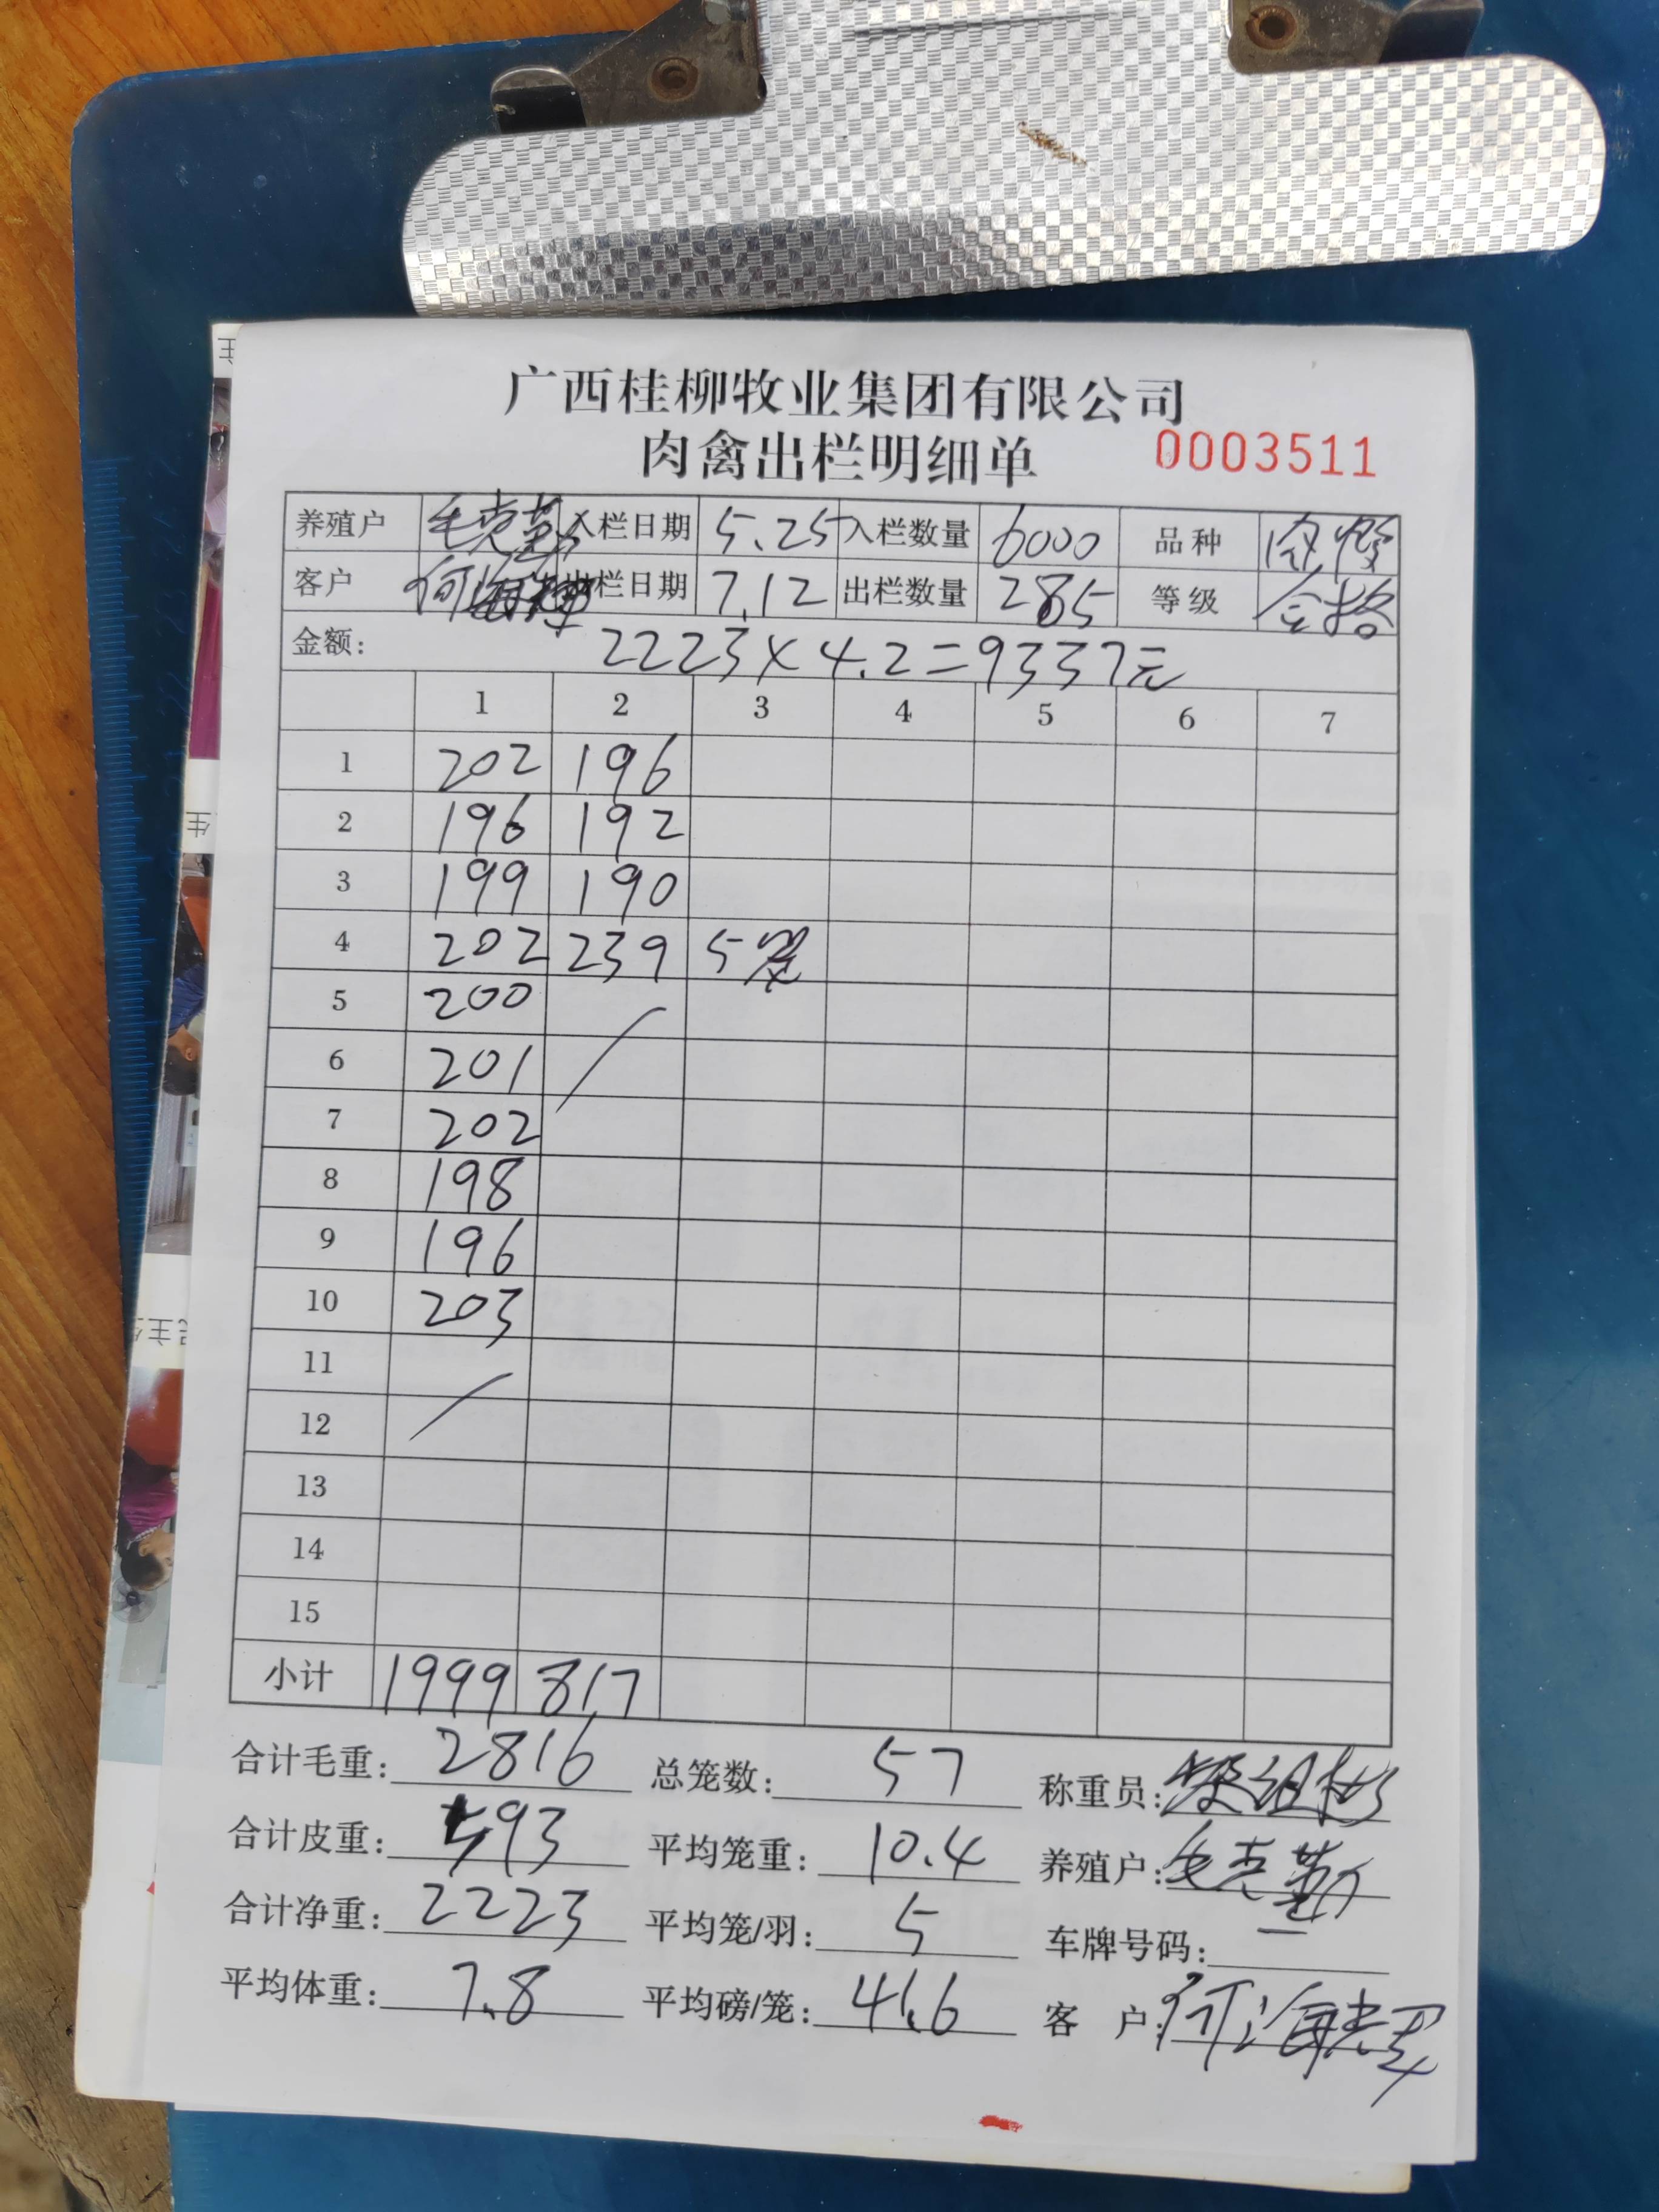 广西桂柳牧业集团有限公司
肉禽出栏明细单 0003511
养殖户 毛克勤 入栏日期 5.25 入栏数量 6000 品种
客户 何海 出栏日期 7.12 出栏数量 285 等级 合格
金额: 2223×4.2=9337元
1 2 3 4 5 6 7
1 202 196
2 196 192
3 199 190
4 202 239 5笼
5 200
6 201
7 202
8 198
9 196
10 203
11
12
13
14
15
小计 1999 817
合计毛重: 2816 总笼数: 57 称重员:
合计皮重: 593 平均笼重: 10.4 养殖户: 毛克勤
合计净重: 2223 平均笼/羽: 5 车牌号码: —
平均体重: 7.8 平均磅/笼: 41.6 客 户: 何海